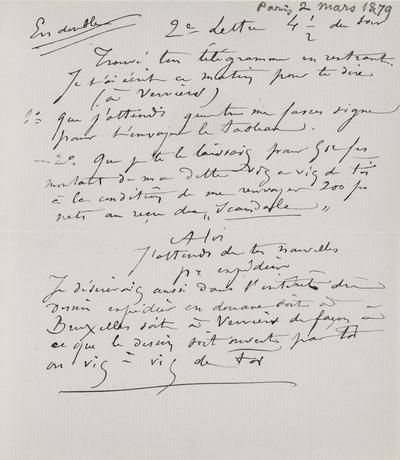 Paris 2 mars 1879
En double
2e Lettre 4 1/2 du soir
Trouvé ton télégramme en rentrant.
Je t'ai écrit ce matin pour te dire
(à Verviers)
1o que j'attends que tu me fasses signe
pour t'envoyer le tableau.
- 2o. que je te le laissais pour 512 fs
montant de ma dette vis à vis de toi
à la condition de me renvoyer 200 fs
nets au reçu du "Scandale"
A toi
J'attends de tes nouvelles
pr expédier
Je désirerais aussi dans l'intérêt du
dessin expédier en douane soit à
Bruxelles soit à Verviers de façon à
ce que le dessin soit ouvert par toi
ou vis à vis de toi